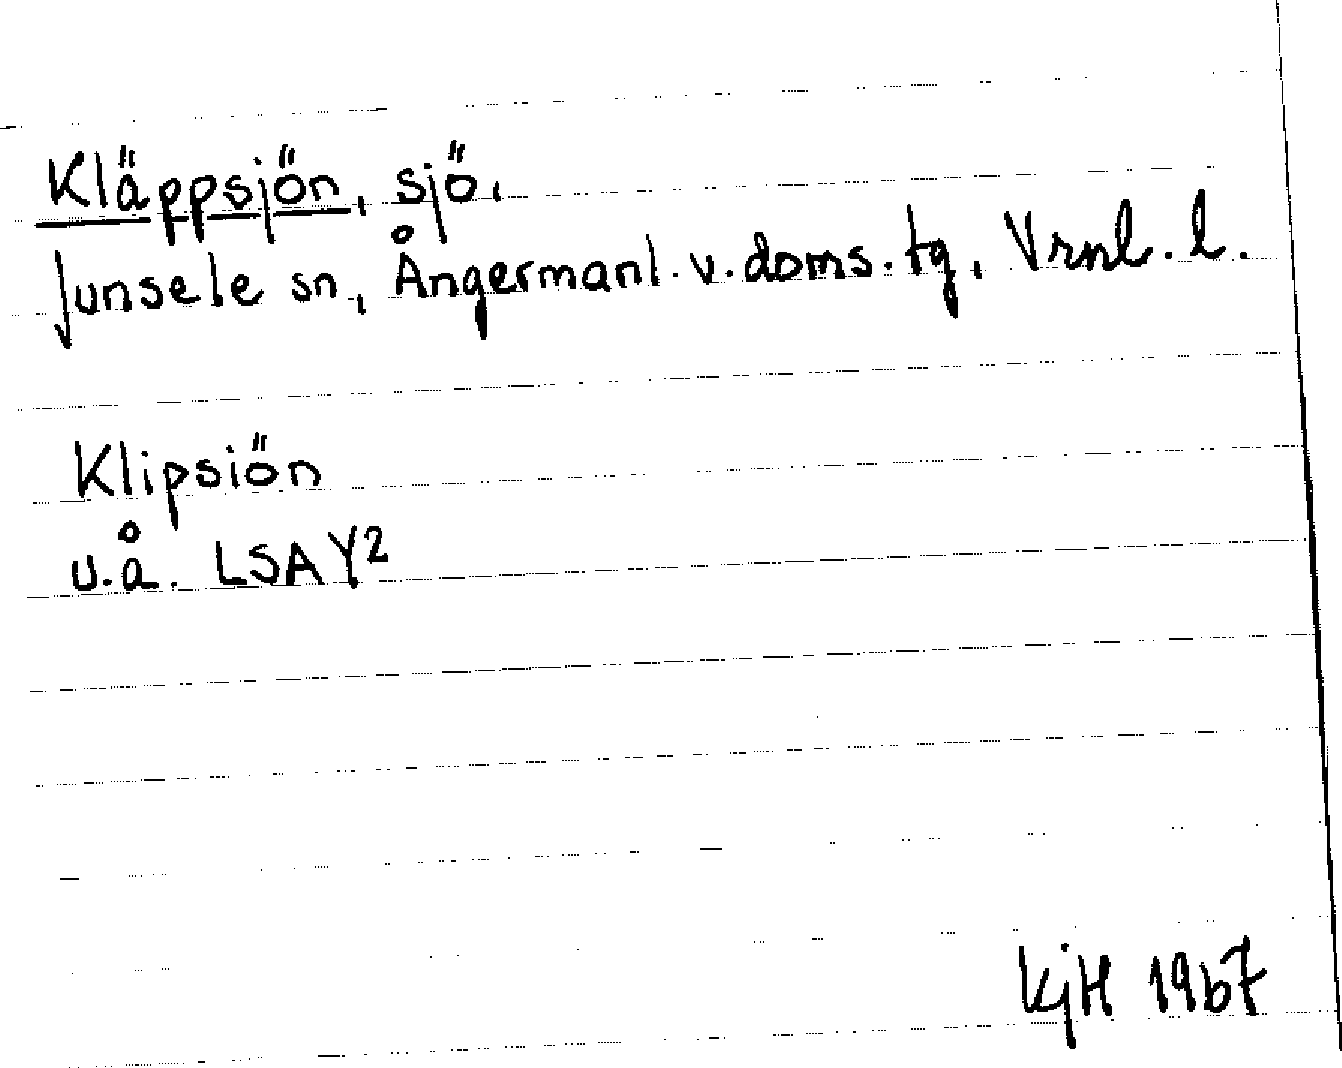 Kläppsjön, sjö,
Junsele sn, Ångermanl. v. doms. tg, Vrnl. l.
Klipsiön
u.å. LSA Y2
KjH 1967